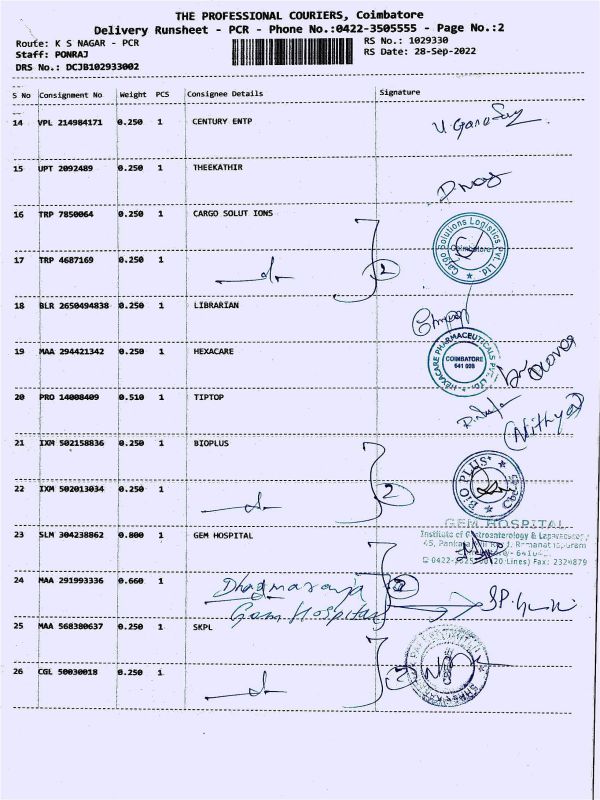 THE PROFESSIONAL COURIERS, Coimbatore
Delivery Runsheet - PCR - Phone No.:0422-3505555 - Page No.:2
Route: K S NAGAR - PCR
Staff: PONRAJ
DRS No.: DCJB102933002
RS No.: 1029330
RS Date: 28-Sep-2022
S No Consignment No Weight PCS Consignee Details Signature
14 VPL 214984171 0.250 1 CENTURY ENTP
15 UPT 2092489 0.250 1 THEEKATHIR
16 TRP 7850064 0.250 1 CARGO SOLUT IONS
Cargo Solutions Logistics Pvt. Ltd.
Coimbatore
17 TRP 4687169 0.250 1
2
18 BLR 2650494838 0.250 1 LIBRARIAN
19 MAA 294421342 0.250 1 HEXACARE
HEXACARE PHARMACEUTICALS PVT. LTD.
COIMBATORE
641 009
20 PRO 14008409 0.510 1 TIPTOP
(Nithya)
21 IXM 502158836 0.250 1 BIOPLUS
BIO PLUS
22 IXM 502013034 0.250 1
2
23 SLM 304238862 0.800 1 GEM HOSPITAL
GEM HOSPITAL
Institute of Gastroenterology & Laparoscopy
45, Pankaja Ramanathapuram
24 MAA 291993336 0.660 1
Gem Hospital
25 MAA 568380637 0.250 1 SKPL
26 CGL 50030018 0.250 1
2